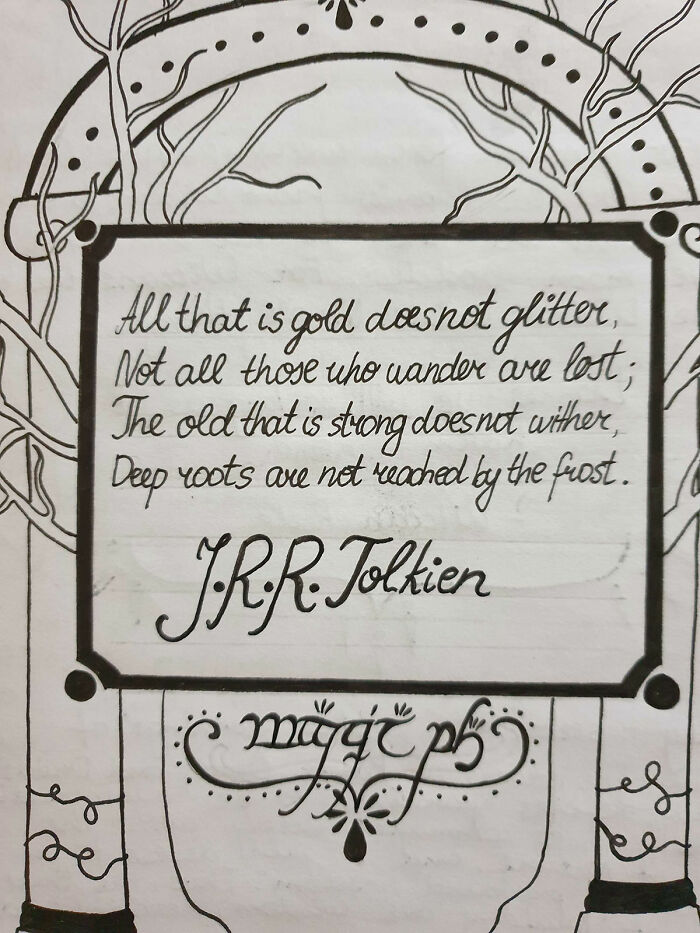 All that is gold does not glitter,
Not all those who wander are lost;
The old that is strong does not wither,
Deep roots are not reached by the frost.
J.R.R. Tolkien